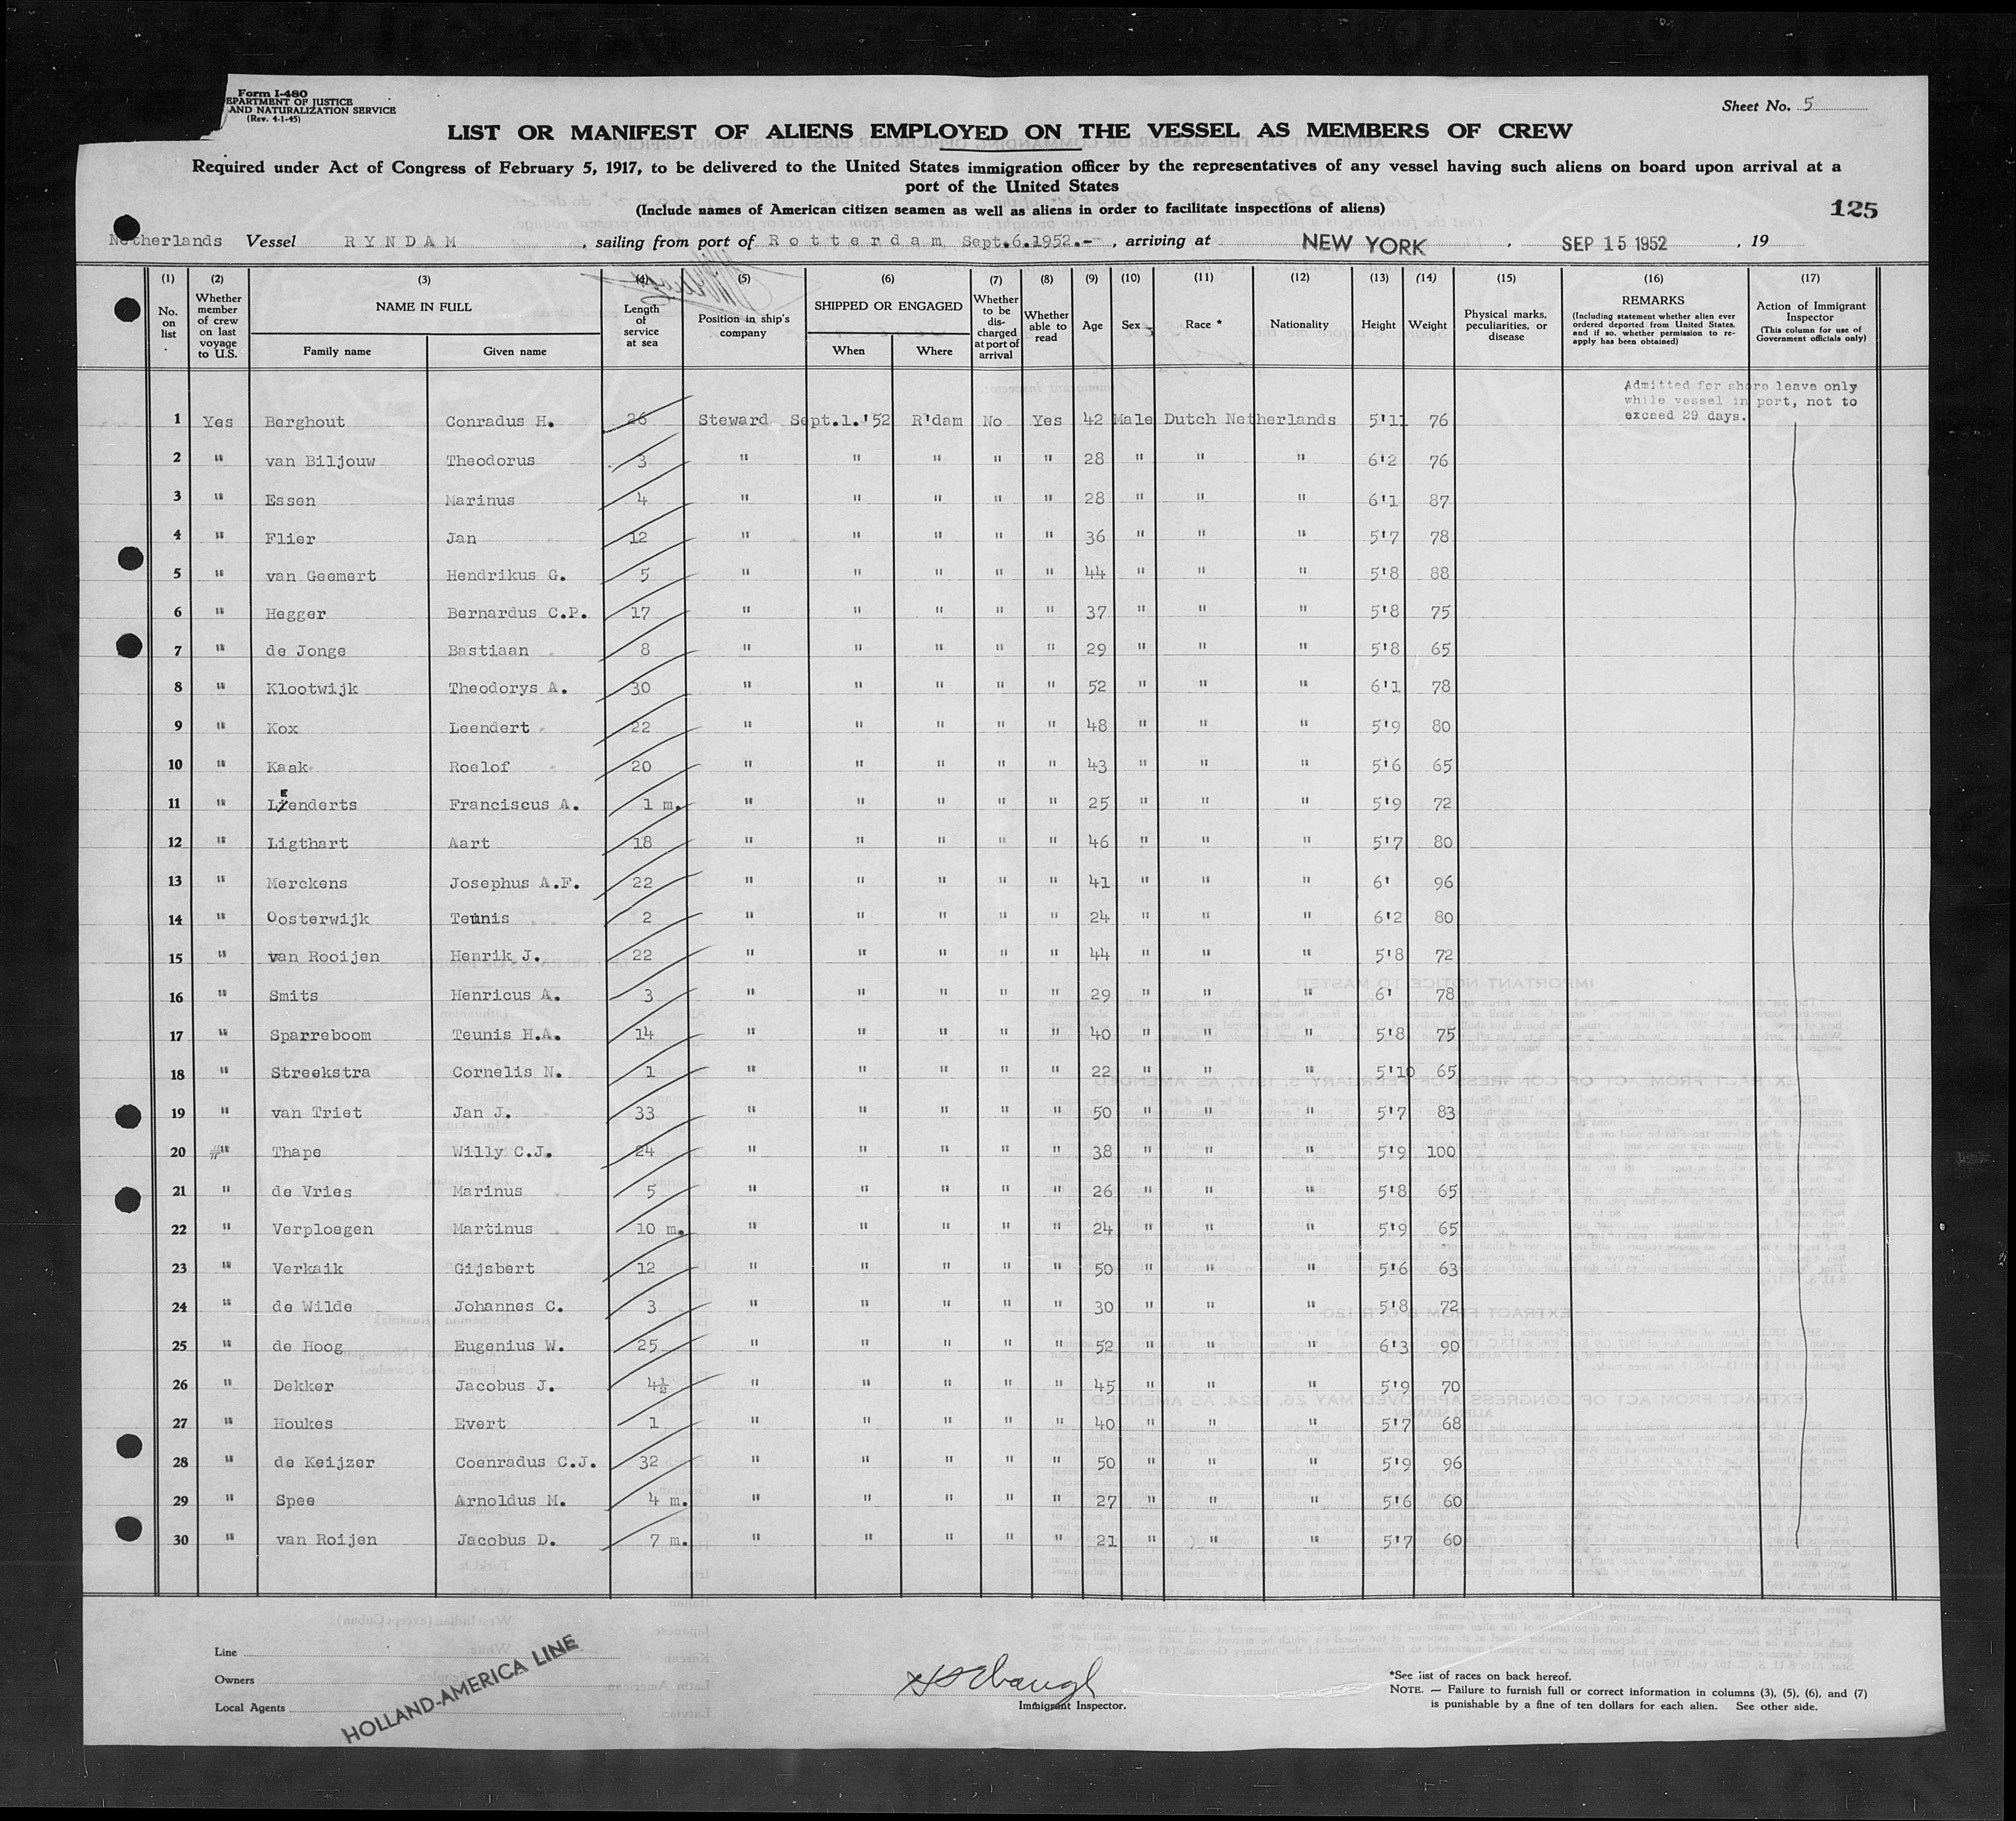 Form I-480
EPARTMENT OF JUSTICE
AND NATURALIZATION SERVICE
(Rev. 4-1-45)
Sheet No. 5
LIST OR MANIFEST OF ALIENS EMPLOYED ON THE VESSEL AS MEMBERS OF CREW
Required under Act of Congress of February 5, 1917, to be delivered to the United States immigration officer by the representatives of any vessel having such aliens on board upon arrival at a
port of the United States
(Include names of American citizen seamen as well as aliens in order to facilitate inspections of aliens)
125
Netherlands Vessel RYNDAM, sailing from port of Rotterdam Sept.6.1952.-, arriving at NEW YORK, SEP 15 1952, 19
(1) (2) (3) (4) (5) (6) (7) (8) (9) (10) (11) (12) (13) (14) (15) (16) (17)
No. on list
Whether member of crew on last voyage to U.S.
NAME IN FULL
Family name
Given name
Length of service at sea
Position in ship's company
SHIPPED OR ENGAGED
When
Where
Whether to be discharged at port of arrival
Whether able to read
Age
Sex
Race *
Nationality
Height
Weight
Physical marks, peculiarities, or disease
REMARKS
(Including statement whether alien ever ordered deported from United States, and if so, whether permission to reapply has been obtained)
Action of Immigrant Inspector
(This column for use of Government officials only)
Admitted for shore leave only
while vessel in port, not to
exceed 29 days.
1 Yes Berghout Conradus H. 26 Steward Sept.1.'52 R'dam No Yes 42 Male Dutch Netherlands 5'11 76
2 " van Biljouw Theodorus 3 " " " " " 28 " " " 6'2 76
3 " Essen Marinus 4 " " " " " 28 " " " 6'1 87
4 " Flier Jan 12 " " " " " 36 " " " 5'7 78
5 " van Geemert Hendrikus G. 5 " " " " " 44 " " " 5'8 88
6 " Hegger Bernardus C.P. 17 " " " " " 37 " " " 5'8 75
7 " de Jonge Bastiaan 8 " " " " " 29 " " " 5'8 65
8 " Klootwijk Theodorys A. 30 " " " " " 52 " " " 6'1 78
9 " Kox Leendert 22 " " " " " 48 " " " 5'9 80
10 " Kaak Roelof 20 " " " " " 43 " " " 5'6 65
11 " LEenderts Franciscus A. 1 m. " " " " " 25 " " " 5'9 72
12 " Ligthart Aart 18 " " " " " 46 " " " 5'7 80
13 " Merckens Josephus A.F. 22 " " " " " 41 " " " 6' 96
14 " Oosterwijk Teunis 2 " " " " " 24 " " " 6'2 80
15 " van Rooijen Henrik J. 22 " " " " " 44 " " " 5'8 72
16 " Smits Henricus A. 3 " " " " " 29 " " " 6' 78
17 " Sparreboom Teunis H.A. 14 " " " " " 40 " " " 5'8 75
18 " Streekstra Cornelis N. 1 " " " " " 22 " " " 5'10 65
19 " van Triet Jan J. 33 " " " " " 50 " " " 5'7 83
20 #" Thape Willy C.J. 24 " " " " " 38 " " " 5'9 100
21 " de Vries Marinus 5 " " " " " 26 " " " 5'8 65
22 " Verploegen Martinus 10 m. " " " " " 24 " " " 5'9 65
23 " Verkaik Gijsbert 12 " " " " " 50 " " " 5'6 63
24 " de Wilde Johannes C. 3 " " " " " 30 " " " 5'8 72
25 " de Hoog Eugenius W. 25 " " " " " 52 " " " 6'3 90
26 " Dekker Jacobus J. 4½ " " " " " 45 " " " 5'9 70
27 " Houkes Evert 1 " " " " " 40 " " " 5'7 68
28 " de Keijzer Coenradus C.J. 32 " " " " " 50 " " " 5'9 96
29 " Spee Arnoldus M. 4 m. " " " " " 27 " " " 5'6 60
30 " van Roijen Jacobus D. 7 m. " " " " " 21 " " " 5'7 60
Line
Owners
Local Agents
HOLLAND-AMERICA LINE
Immigrant Inspector.
*See list of races on back hereof.
NOTE. — Failure to furnish full or correct information in columns (3), (5), (6), and (7)
is punishable by a fine of ten dollars for each alien. See other side.